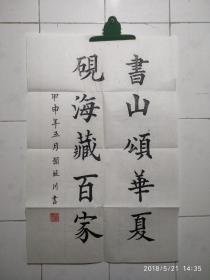 書山頌華夏
硯海藏百家
甲申年五月
書
2018/5/21 14:35